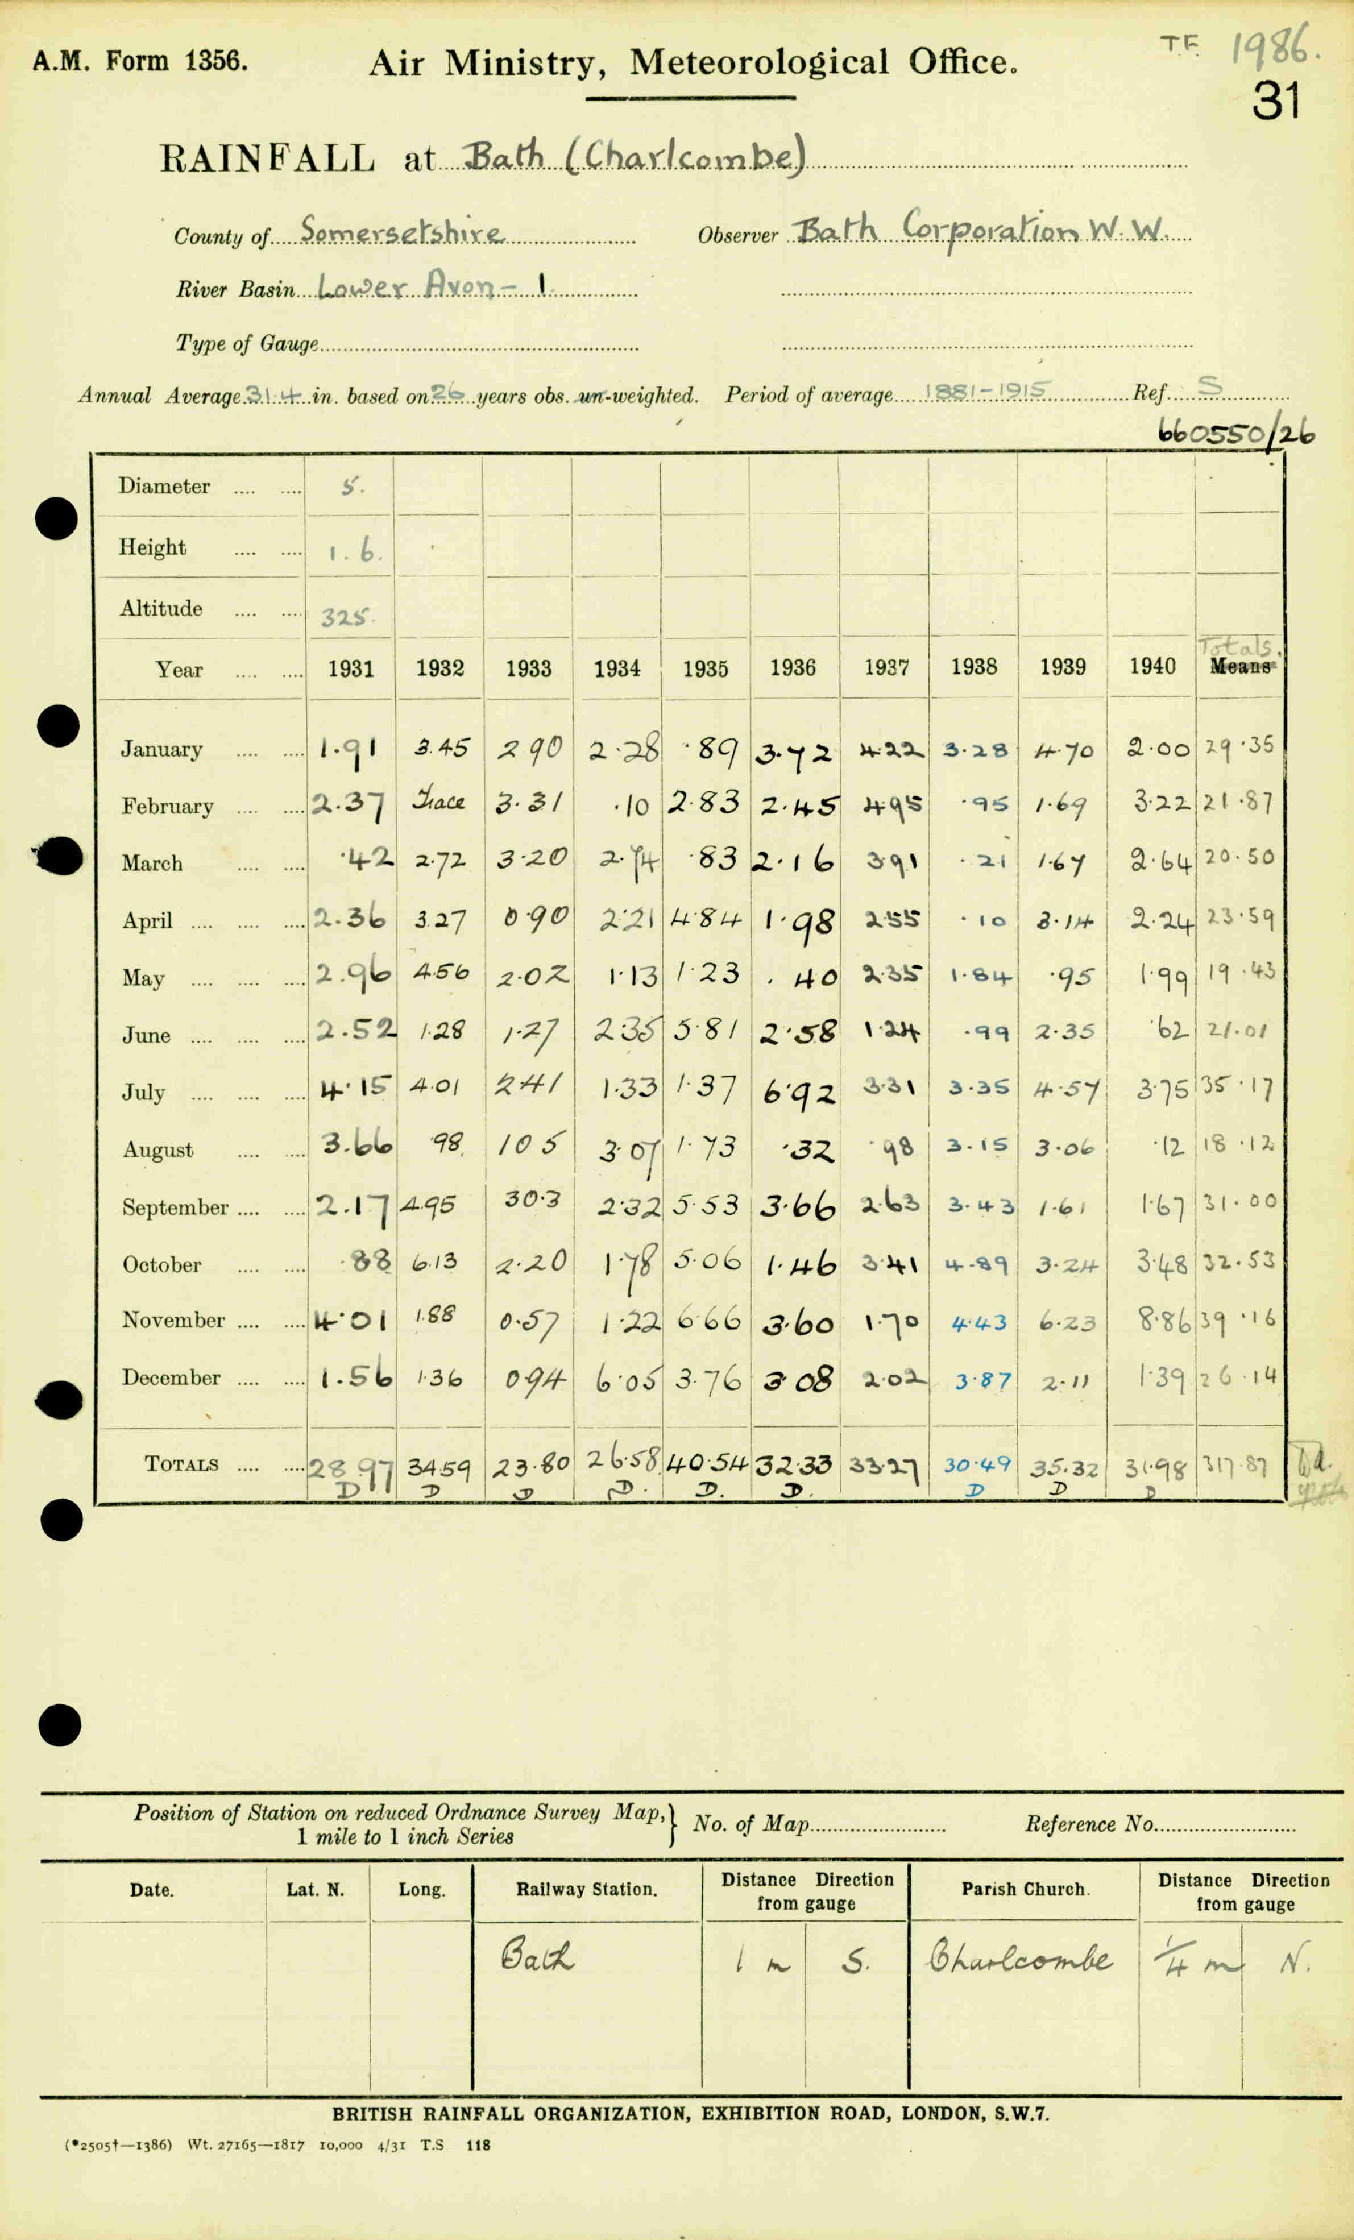 T.F. 1986.
A.M. Form 1356. Air Ministry, Meteorological Office.
31
RAINFALL at Bath (Charlcombe)
County of Somersetshire Observer Bath Corporation W.W.
River Basin Lower Avon - 1.
Type of Gauge
Annual Average 31.4 in. based on 26 years obs. un-weighted. Period of average 1881-1915 Ref. S
660550/26
Diameter .... .... 5.
Height .... .... 1.6.
Altitude .... .... 325.
Totals.
Year .... .... 1931 1932 1933 1934 1935 1936 1937 1938 1939 1940 Means
January .... .... 1.91 3.45 2 90 2.28 .89 3.72 4.22 3.28 4.70 2.00 29.35
February .... .... 2.37 Trace 3.31 .10 2.83 2.45 4.95 .95 1.69 3.22 21.87
March .... .... .42 2.72 3.20 2.74 .83 2.16 3.91 .21 1.67 2.64 20.50
April .... .... .... 2.36 3.27 0.90 2.21 4.84 1.98 2.55 .10 3.14 2.24 23.59
May .... .... .... 2.96 4.56 2.02 1.13 1.23 .40 2.35 1.84 .95 1.99 19.43
June .... .... .... 2.52 1.28 1.27 2.35 5.81 2.58 1.24 .99 2.35 .62 21.01
July .... .... .... 4.15 4.01 2.41 1.33 1.37 6.92 3.31 3.35 4.57 3.75 35.17
August .... .... 3.66 .98 10 5 3.07 1.73 .32 .98 3.15 3.06 .12 18.12
September .... .... 2.17 4.95 30.3 2.32 5.53 3.66 2.63 3.43 1.61 1.67 31.00
October .... .... .88 6.13 2.20 1.78 5.06 1.46 3.41 4.89 3.24 3.48 32.53
November .... .... 4.01 1.88 0.57 1.22 6.66 3.60 1.70 4.43 6.23 8.86 39.16
December .... .... 1.56 1.36 0.94 6.05 3.76 3.08 2.02 3.87 2.11 1.39 26.14
TOTALS .... .... 28.97 34.59 23.80 26.58 40.54 32.33 33.27 30.49 35.32 31.98 317.87
D D D D. D. D. D D D
Position of Station on reduced Ordnance Survey Map, } No. of Map Reference No.
1 mile to 1 inch Series
Date. Lat. N. Long. Railway Station. Distance Direction from gauge Parish Church. Distance Direction from gauge
Bath 1 m S. Charlcombe 1/4 m N.
BRITISH RAINFALL ORGANIZATION, EXHIBITION ROAD, LONDON, S.W.7.
(*2505†—1386) Wt. 27165—1817 10,000 4/31 T.S. 118